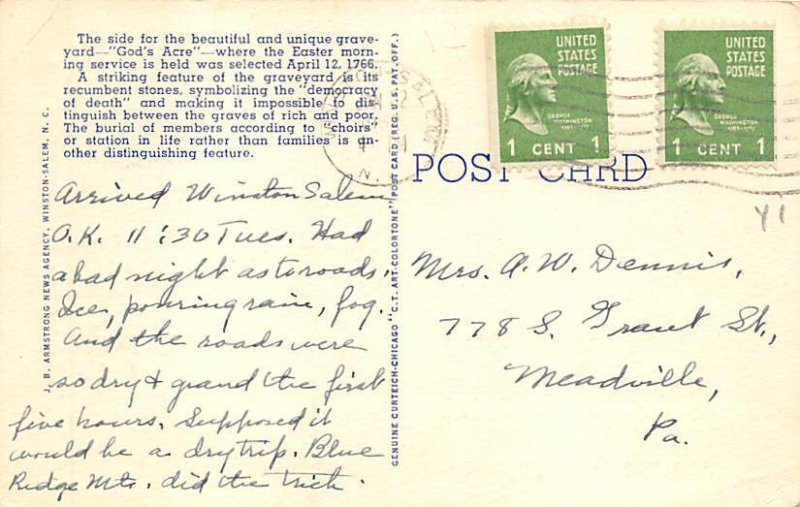 The side for the beautiful and unique grave-
yard—"God's Acre"—where the Easter morn-
ing service is held was selected April 12, 1766.
A striking feature of the graveyard is its
recumbent stones, symbolizing the "democracy
of death" and making it impossible to dis-
tinguish between the graves of rich and poor.
The burial of members according to "choirs"
or station in life rather than families is an-
other distinguishing feature.
J. B. ARMSTRONG NEWS AGENCY, WINSTON-SALEM, N. C.
Arrived Winston Salem
O.K. 11:30 Tues. Had
a bad night as to roads.
Ice, pouring rain, fog.
And the roads were
so dry & grand the first
five hours. Supposed it
would be a dry trip. Blue
Ridge Mts. did the trick.
GENUINE CURTEICH-CHICAGO "C. T. ART-COLORTONE" POST CARD (REG. U. S. PAT. OFF.)
N.
UNITED
STATES
POSTAGE
GEORGE
WASHINGTON
1 CENT 1
UNITED
STATES
POSTAGE
GEORGE
WASHINGTON
1 CENT 1
POST CARD
Y1
Mrs. A. W. Dennis,
778 S. Grant St.,
Meadville,
Pa.